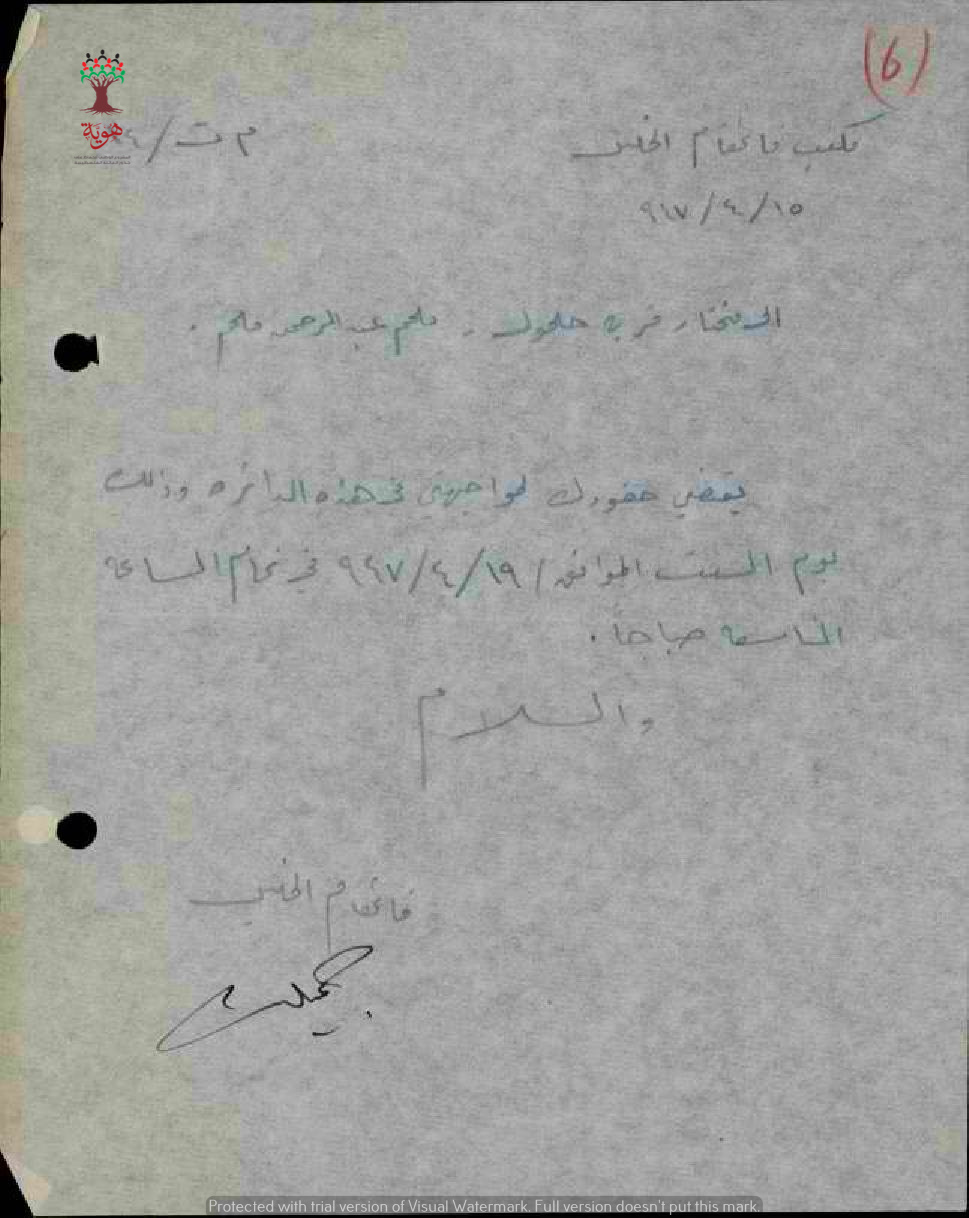 (6)
مكتب قائمقام الخليل
م ت/
٩٤٧/٤/١٥
هوية
الى مختار قرية حلحول . ملحم عبد الرحمن ملحم .
يقتضي حضورك لمواجهتي في هذه الدائره وذلك
يوم السبت الموافق / ٩٤٧/٤/١٩ في تمام الساعة
التاسعة صباحاً .
والسلام
قائمقام الخليل
Protected with trial version of Visual Watermark. Full version doesn't put this mark.